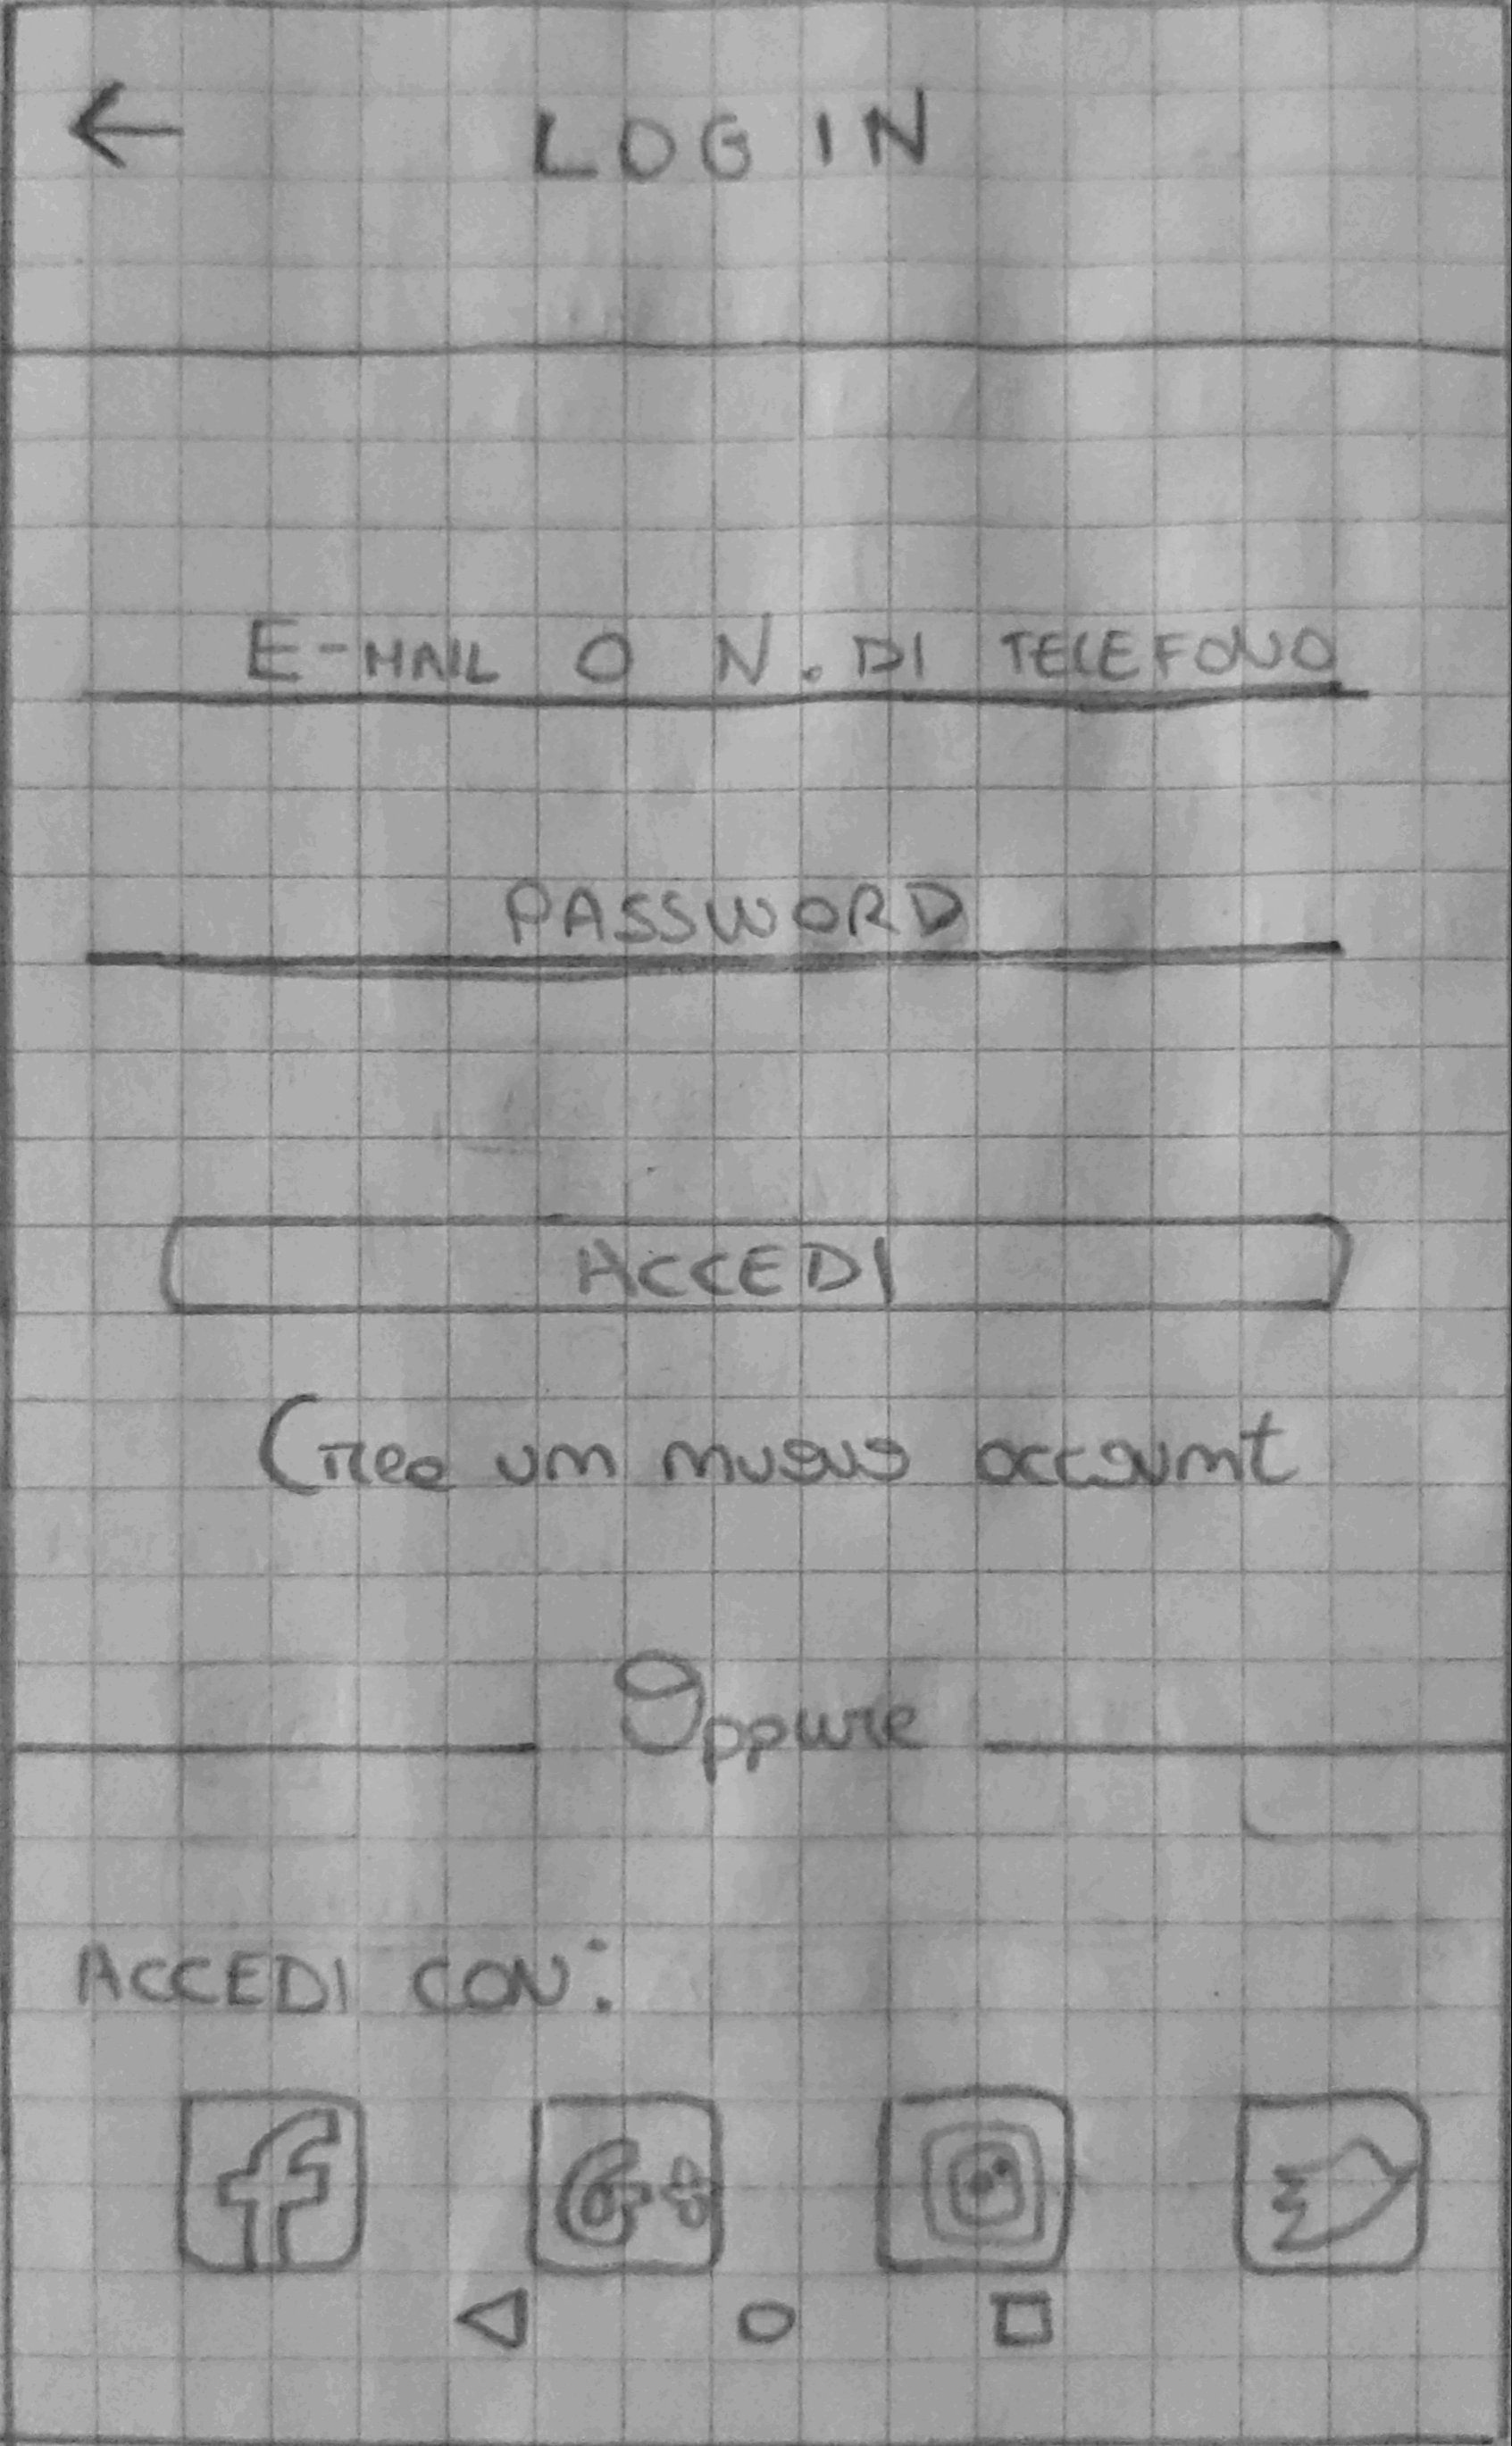 LOG IN
E-MAIL O N. DI TELEFONO
PASSWORD
ACCEDI
Crea un nuovo account
Oppure
ACCEDI CON:
f
G+